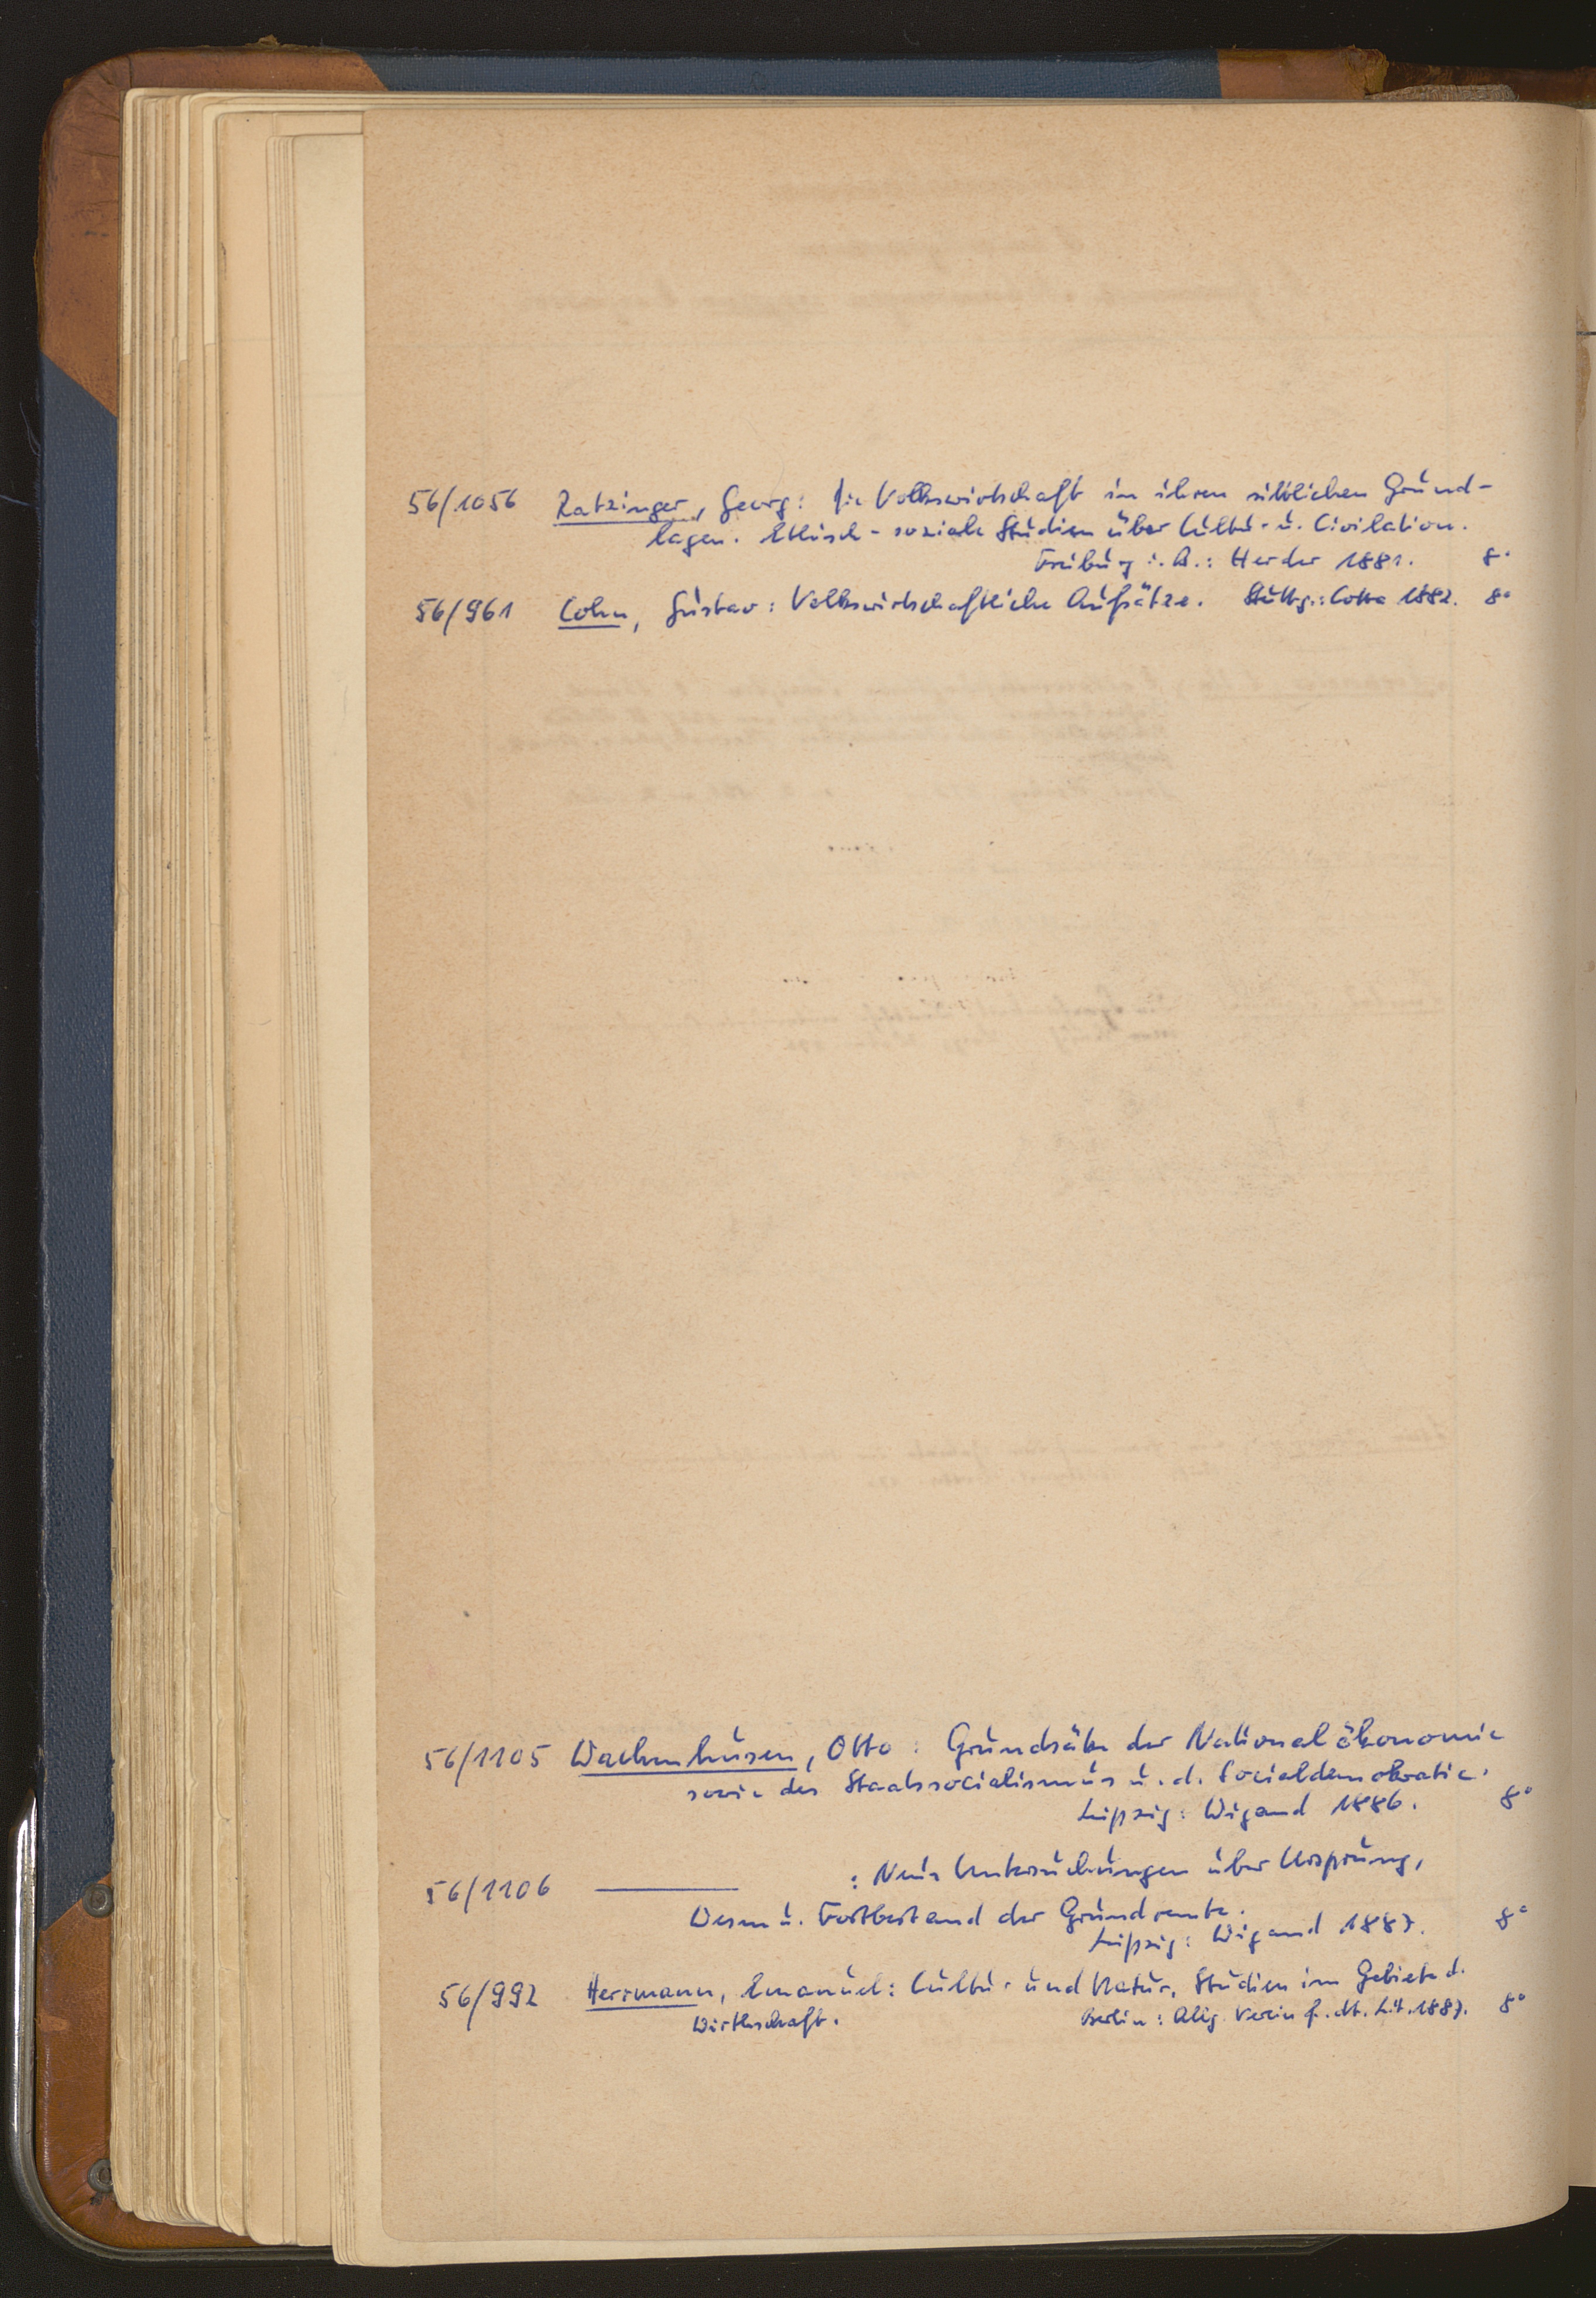 56/1056 Ratzinger, Georg: Die Volkswirtschaft in ihren sittlichen Grund-
lagen. Ethisch-soziale Studien über Cultur u. Civilation.
Freiburg i. B.: Herder 1881. 8°
56/961 Cohn, Gustav: Volkswirtschaftliche Aufsätze. Stuttg.: Cotta 1882. 8°
56/1105 Wachenhusen, Otto: Grundsätze der Nationalökonomie
sowie des Staatssocialismus u. d. Socialdemokratie.
Leipzig: Wigand 1886. 8°
56/1106 ——— : Neue Untersuchungen über Ursprung,
Wesen u. Fortbestand der Grundrente.
Leipzig: Wigand 1887. 8°
56/992 Herrmann, Emanuel: Cultur und Natur, Studien im Gebiete d.
Wirthschaft. Berlin: Allg. Verein f. dt. Lit. 1887. 8°